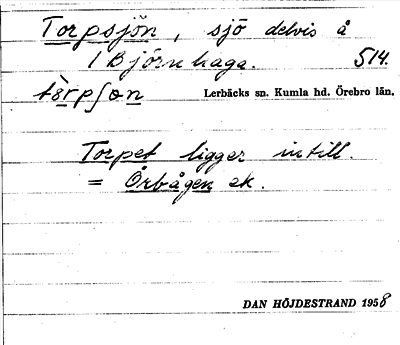 Torpsjön, sjö delvis å
1 Björnhaga. 514.
tòrpʃɵn Lerbäcks sn. Kumla hd. Örebro län.
Torpet ligger intill.
= Örbågen ek.
DAN HÖJDESTRAND 1958